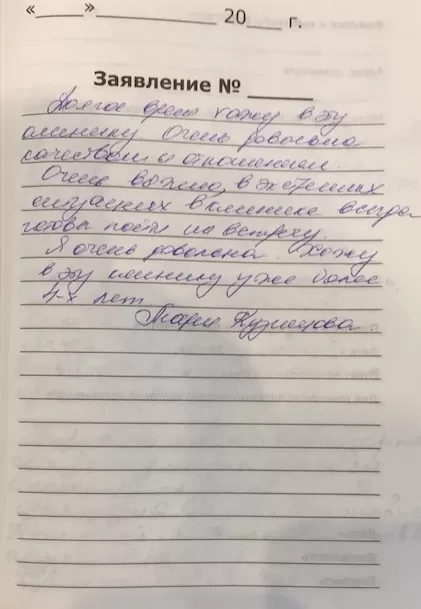 «____»______________ 20____ г.
Заявление № ______
Долгое время хожу в эту
клинику. Очень довольна
качеством и отношением.
Очень важно, в экстренных
ситуациях в клинике всегда
готовы пойти на встречу.
Я очень довольна. Хожу
в эту клинику уже более
4-х лет
Мария Кузнецова